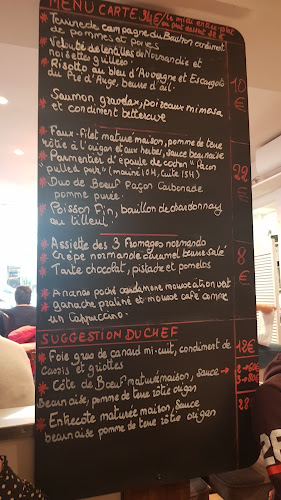 MENU CARTE 34€/
* Terrine de campagne du Bouchon condiment
de pommes et poires
* Velouté de lentilles de Normandie et
noisettes grillées
* Risotto au bleu d'Auvergne et Escargots
du Pré d'Auge, beurre d'ail
10
€
* Saumon gravelax, poireaux mimosa
et condiment betterave
* Faux-filet maturé maison, pomme de terre
rôtie à l'origan et aux herbes, sauce béarnaise
* Parmentier d'épaule de cochon "façon
pulled pork" (mariné 10H, cuite 15H)
22
€
* Duo de Boeuf façon Carbonade
pomme purée
* Poisson Fin, bouillon de chardonnay
au tilleul
* Assiette des 3 fromages normands
* Crêpe normande caramel beurre salé
8
€
* Tarte chocolat, pistache et pomelos
* Ananas poché cardamome
* Ganache praliné et mousse café comme
un Cappuccino
SUGGESTION DU CHEF
* Foie gras de canard mi-cuit, condiment de
cassis et griottes
12€
* Côte de Boeuf maturé maison, sauce →
Béarnaise, pomme de terre rôtie origan
* Entrecôte maturée maison, sauce
bearnaise pomme de terre rôtie origan
28